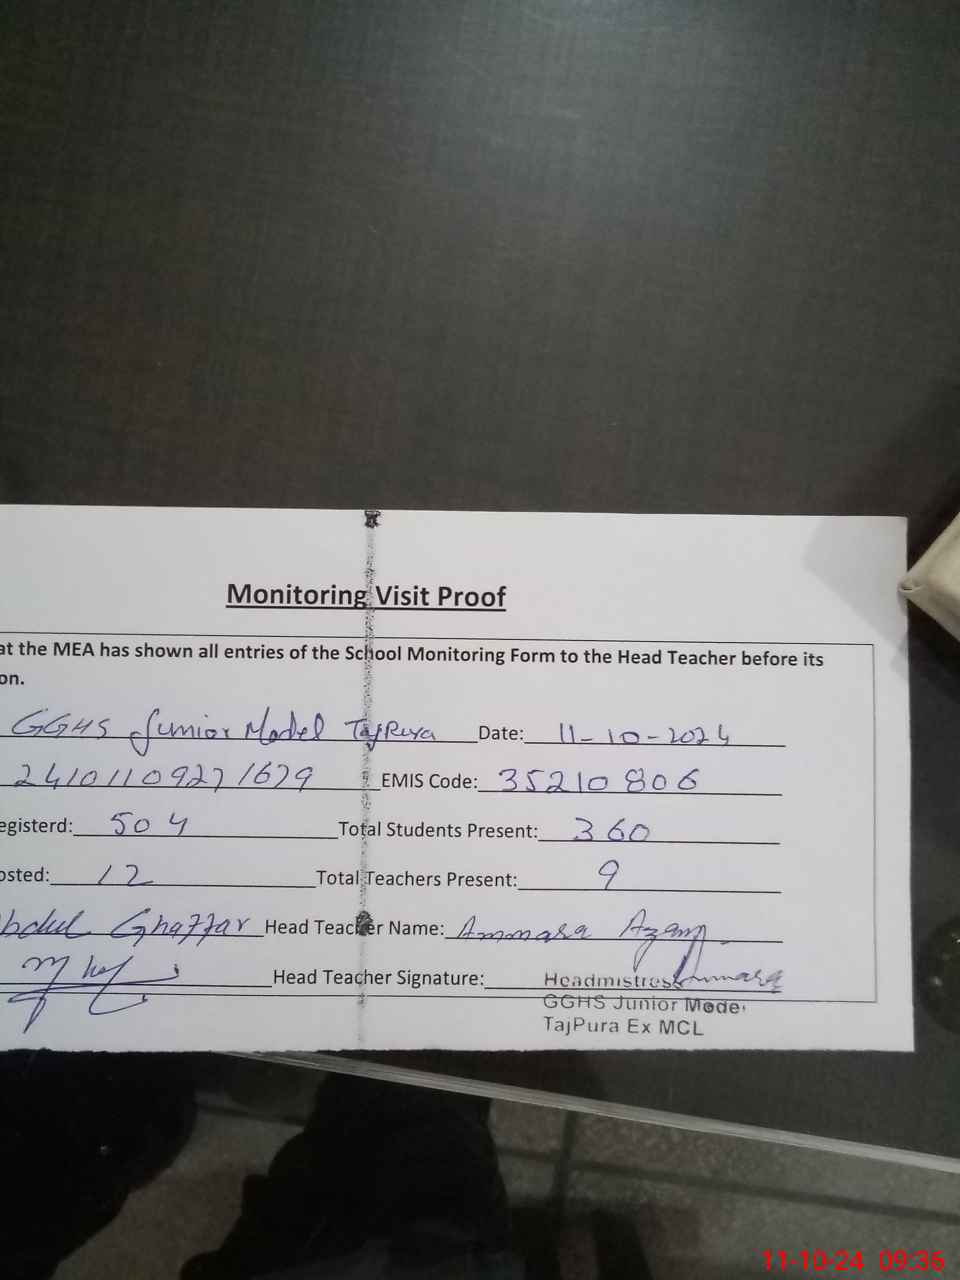 Monitoring Visit Proof
at the MEA has shown all entries of the School Monitoring Form to the Head Teacher before its
on.
GGHS Junior Model TajPura Date: 11-10-2024
24101109271679 EMIS Code: 35210806
egisterd: 504 Total Students Present: 360
osted: 12 Total Teachers Present: 9
bdul Ghaffar Head Teacher Name: Ammara Azam
Head Teacher Signature: Ammara
Headmistress
GGHS Junior Model
TajPura Ex MCL
11-10-24 09:36